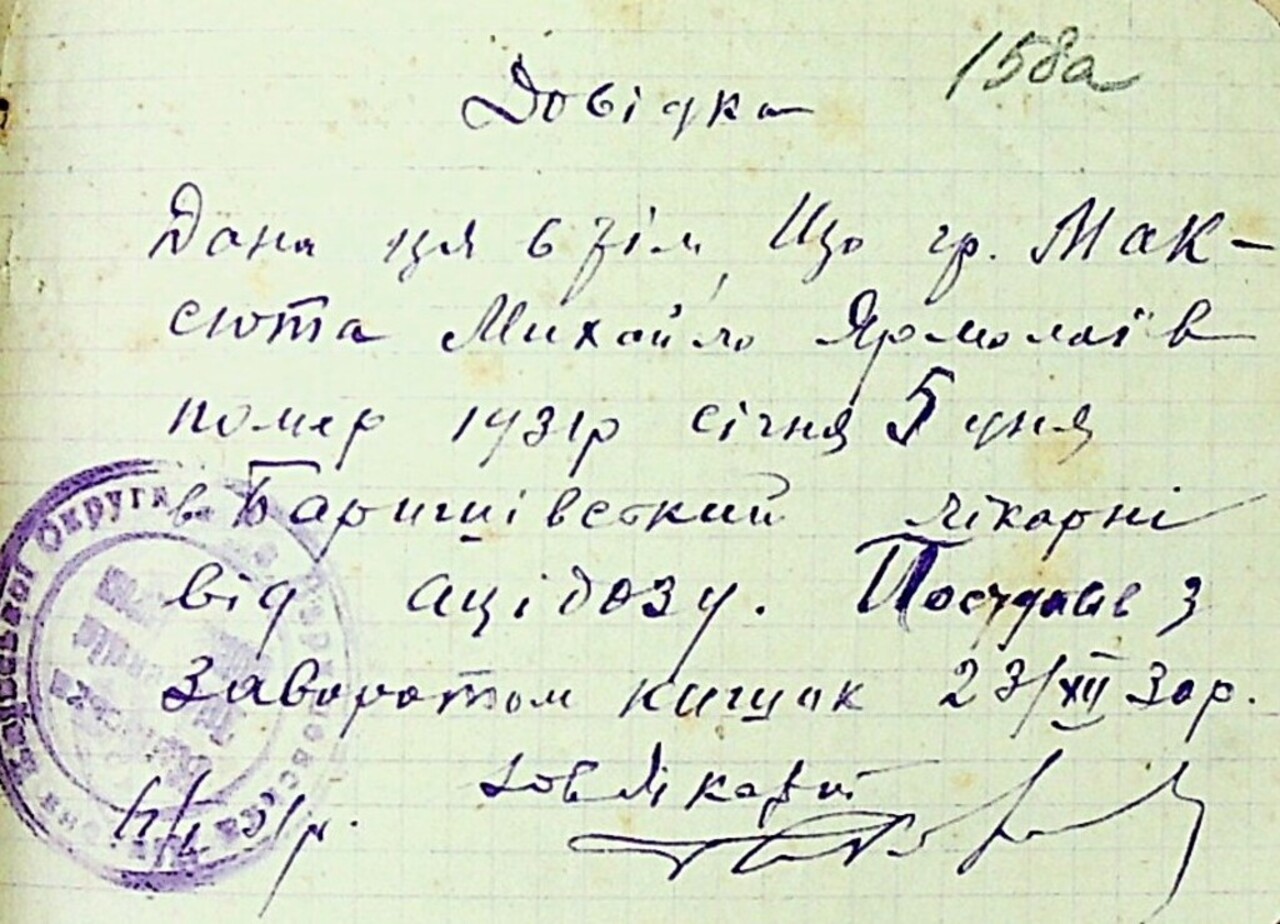 158а
Довідка
Дана ця в тім, Що гр. Мак-
сюта Михайло Ярмолаїв
помер 1931р січня 5 дня
в Баришівский лікарні
від ацідозу. Поступив з
заворотом кишок 23/XII 30р.
Зав лікарні